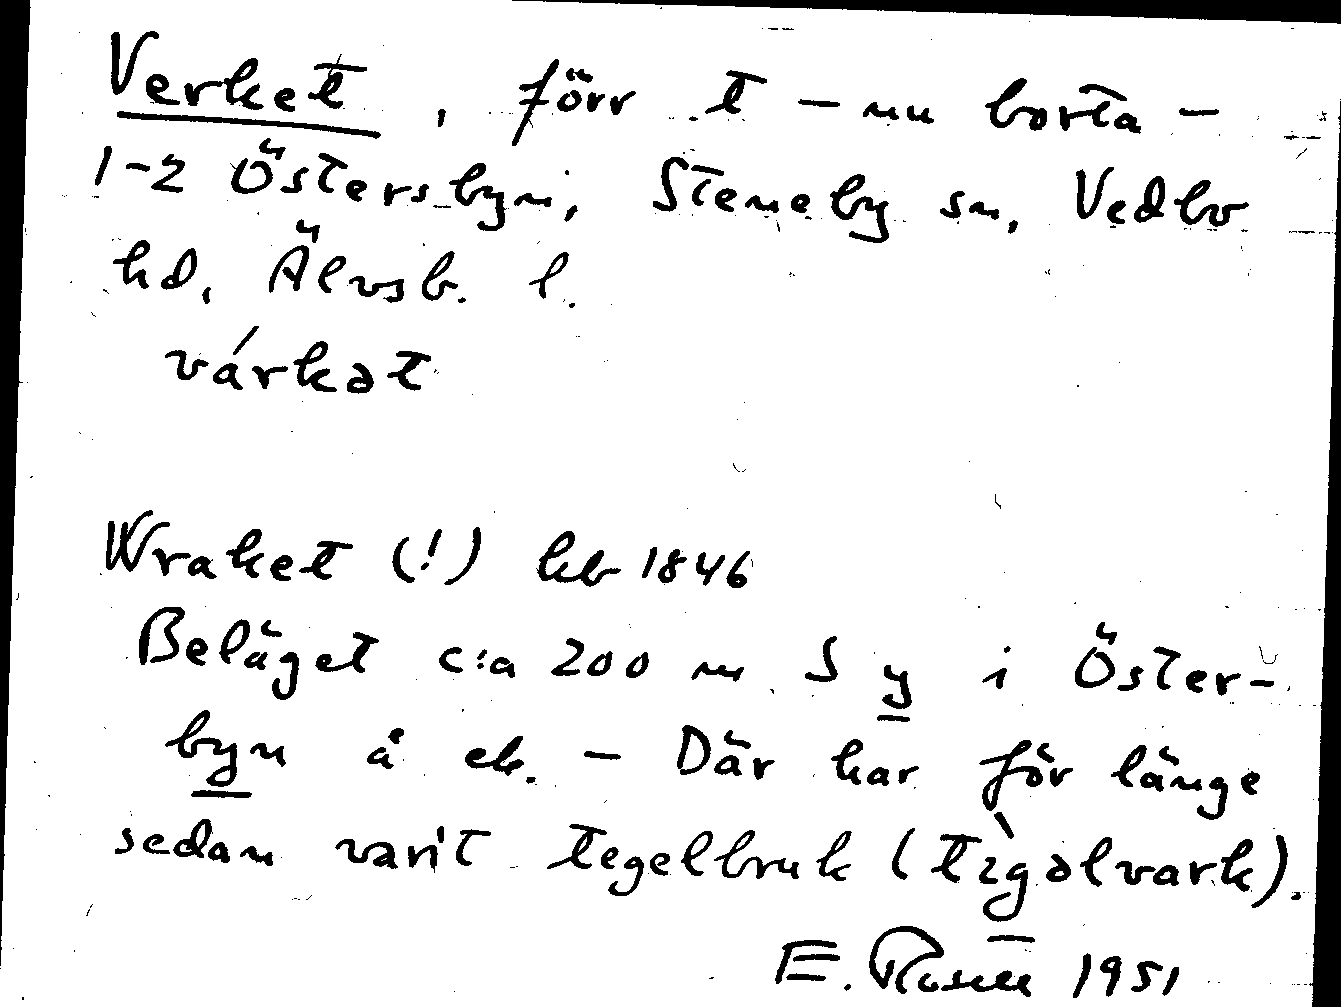 Verket, förr t – nu borta –
1-2 Östersbyn, Steneby sn, Vedbo
hd, Älvsb. l.
várkət
Wraket (!) kb 1846
Beläget c:a 200 m S y i Öster-
byn å ek. – Där har för länge
sedan varit tegelbruk (tìgəlvark).
E. Rosell 1951